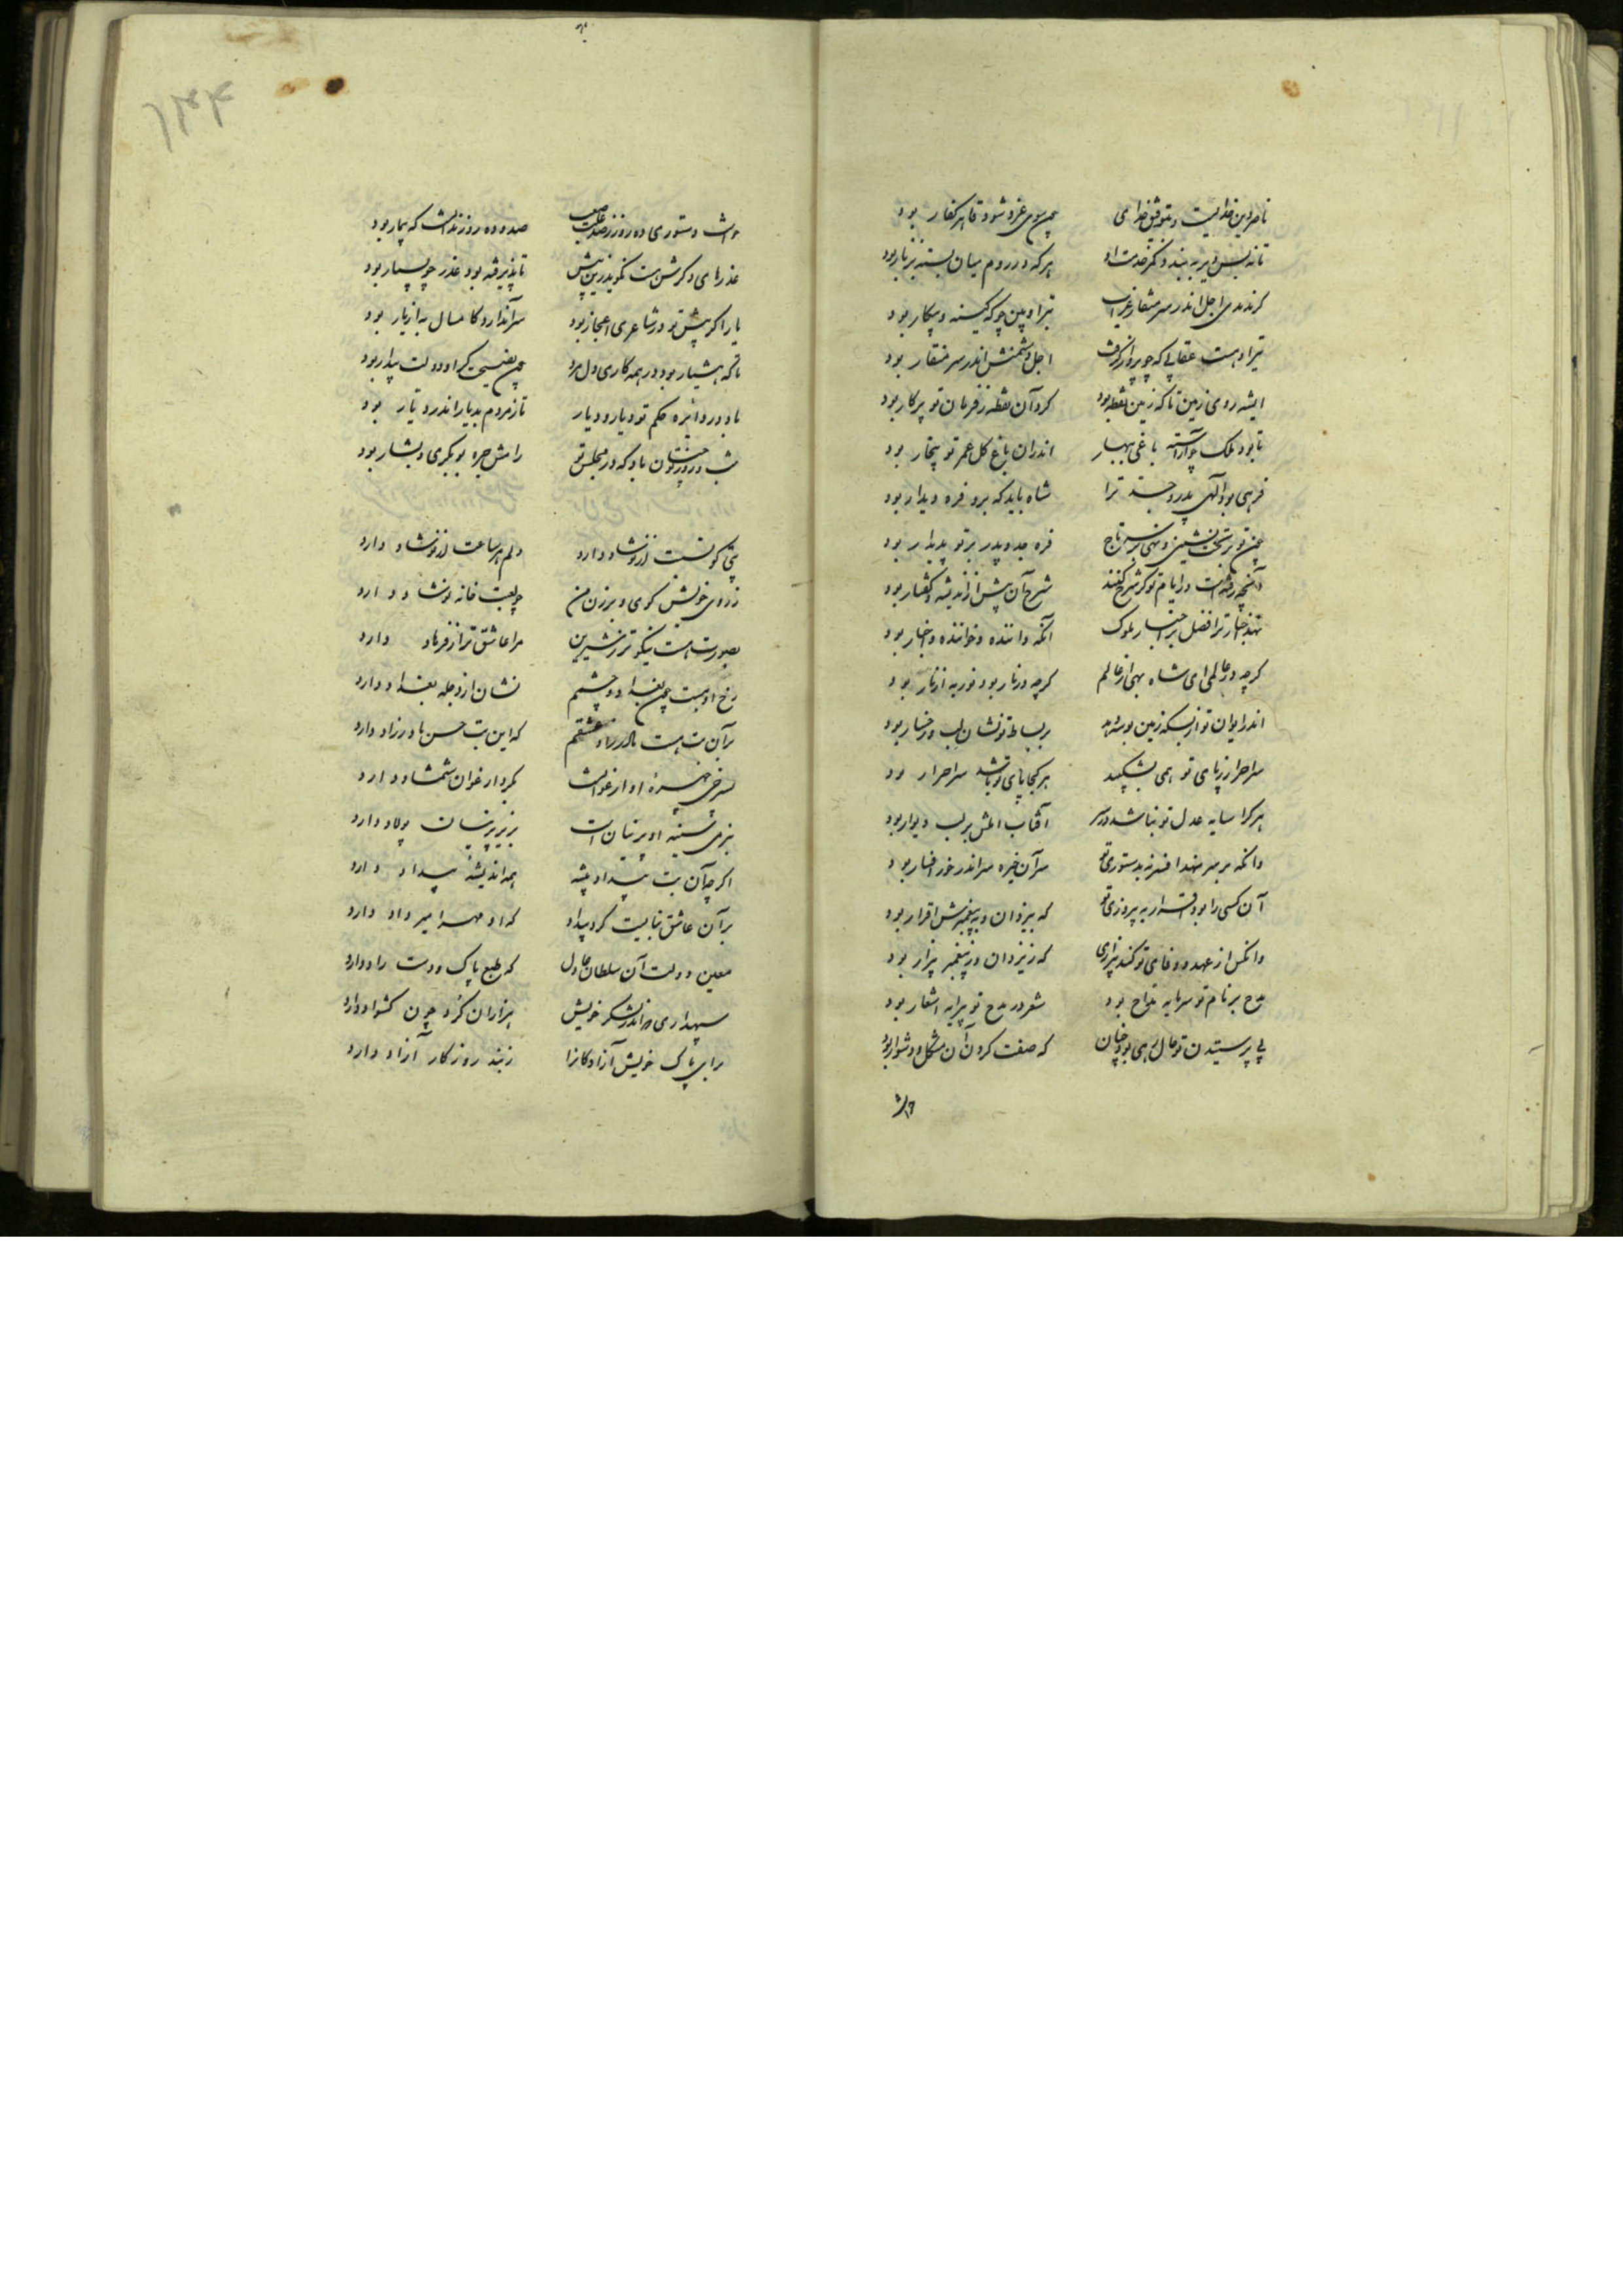 ناصر دین خدایست و بتوفیق خدای چون سوی غزو شود قاهر کفار بود
تا نه بس دیر به بندد کمر خدمت او هر که در روم میان بسته بزنار بود
گر ندیدی اجل اندر سر منقار عقاب تیر او بین چو گه کینه و پیکار بود
تیر او هست عقابی که چو پرواز گرفت اجل دشمنش اندر سر منقار بود
ای شه روی زمین تا که زمین نقطه بود گرد آن نقطه ز فرمان تو پرگار بود
تا بود ملک چو آراسته باغی ببهار اندران باغ گل عمر تو بیخار بود
فرهی بود الهی پدر و جد ترا شاه باید که برو فره دیدار بود
چون تو بر تخت نشینی و نهی بر سر تاج فره جد و پدر بر تو پدیدار بود
آنچه رفته است در ایام تو گر شرح کنند شرح آن بیش از اندیشه و گفتار بود
نهد اخبار ترا فضل بر اخبار ملوک آنکه داننده و خواننده اخبار بود
گرچه در عالمی ای شاه بهی از عالم گرچه در نار بود نور به از نار بود
اندر ایوان تو از بسکه زمین بوسه دهد بر بساط تو نشان لب و رخسار بود
سر احرار ز پای تو همی نشکیبد هر کجا پای تو باشد سر احرار بود
هر کرا سایه عدل تو نباشد بر سر آفتاب املش بر لب دیوار بود
وانکه بر سر نهد افسر نه بدستوری تو سر آن خیره سر اندر خور افسار بود
آن کسی را بود اقرار به پیروزی تو که بیزدان و به پیغمبرش اقرار بود
وانکس از عهد و وفای تو کند بیزاری که ز یزدان و ز پیغمبر بیزار بود
مدح بر نام تو سرمایه مداح بود شعر در مدح تو پیرایه اشعار بود
پرستیدن تو حال رهی بود چنان که صفت کردن آن مشکل و دشوار بود
خواست
خواست دستوری ده روز ز صدر صاحب صد و ده روز زندانست که بیمار بود
عذرهای دگرش هست نگوید زین بیش تا پذیرفته بود عذر چو بسیار بود
یار اگر پیش تو در شاعری اعجاز بود سر آن دارد کامسال به از پار بود
تا که هشیار بود در همه کاری دل مرد چون نصیحت گر او دولت بیدار بود
باد در دایره حکم تو دیار و دیار تا ز مردم بدیار اندر دیار بود
شب و روز تو چنان باد که در مجلس تو رامش حجره بوبکری و بشار بود
بتی کو نسبت از نوشاد دارد دلم هر ساعت از نو شاد دارد
ز روی خویش کوی و برزن من چو لعبت خانه نوشاد دارد
بصورت هست نیکوتر ز شیرین مرا عاشق تر از فرهاد دارد
رخ او هست چون بغداد و چشمم نشان از دجله بغداد دارد
بر آن بت هست مادرزاد عشقم که این بت حسن مادرزاد دارد
بسرخی چهره او ارغوانست که بر ارغوان شمشاد دارد
بنرمی سینه او پرنیان است بزیر پرنیان پولاد دارد
اگرچه آن بت بیداد پیشه همه اندیشه بیداد دارد
بر آن عاشق نیابت کرد بیداد که او مهر امیر داد دارد
معین دولت آن سلطان عادل که طبع پاک و دست راد دارد
سپهداری که اندر لشکر خویش هزاران گرد چون کشواد دارد
برای پاک خویش آزادگانرا ز بند روزگار آزاد دارد